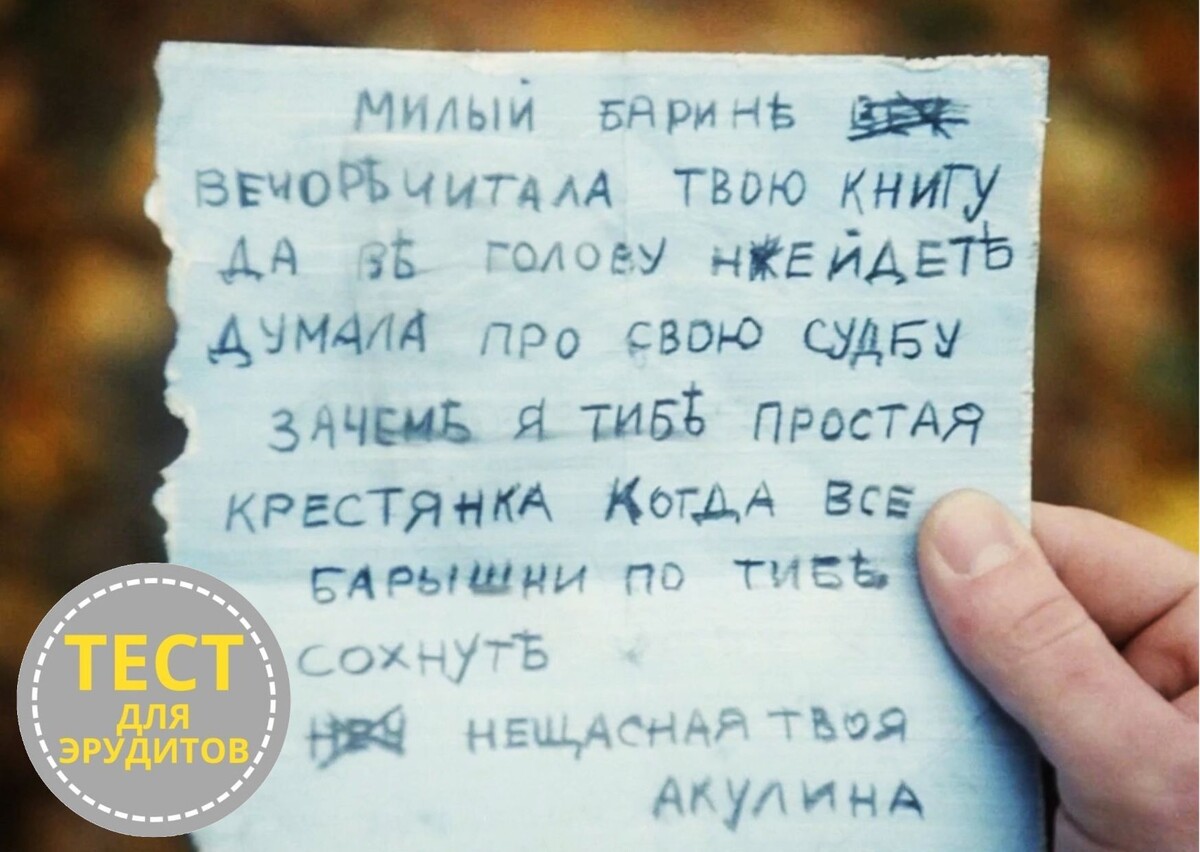 МИЛЫЙ БАРИНѢ
ВЕЧОРѢ ЧИТАЛА ТВОЮ КНИГУ
ДА ВѢ ГОЛОВУ НЕЙДЕТѢ
ДУМАЛА ПРО СВОЮ СУДБУ
ЗАЧЕМѢ Я ТИБѢ ПРОСТАЯ
КРЕСТЯНКА КОГДА ВСЕ
БАРЫШНИ ПО ТИБѢ
СОХНУТѢ
НЕЩАСНАЯ ТВОЯ
АКУЛИНА
ТЕСТ
ДЛЯ
ЭРУДИТОВ